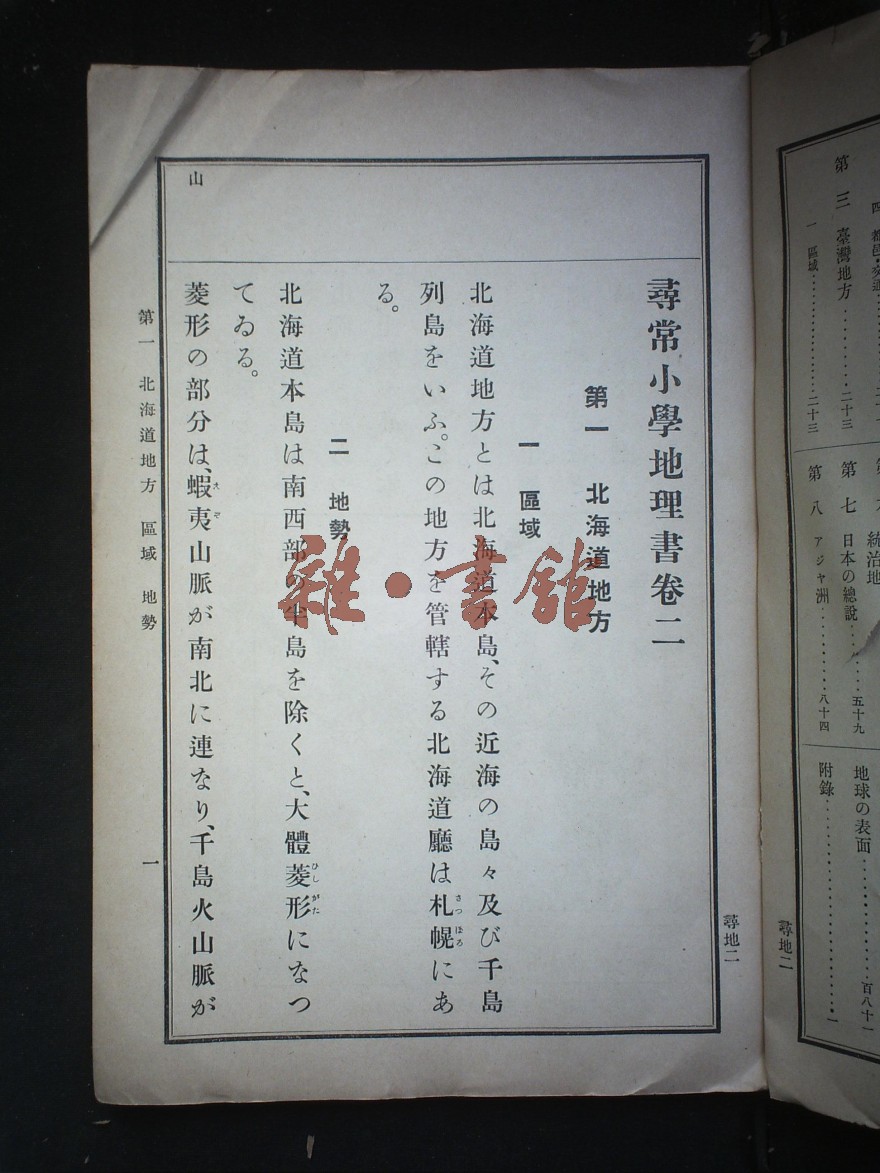 尋常小學地理書卷二
第一 北海道地方
一 區域
北海道地方とは北海道本島、その近海の島々及び千島
列島をいふ。この地方を管轄する北海道廳は札幌にあ
さつ ぽろ
る。
二 地勢
北海道本島は南西部の半島を除くと、大體菱形になつ
ひし がた
てゐる。
菱形の部分は、蝦夷山脈が南北に連なり、千島火山脈が
えぞ
山
第一 北海道地方 區域 地勢
一
尋地二
雜·書舘
四 都邑・交通
第三 臺灣地方………二十三
一 區域………二十三
統治地
第七 日本の總說………五十九
第八 アジヤ洲………八十四
地球の表面………百八十一
附錄………一
尋地二